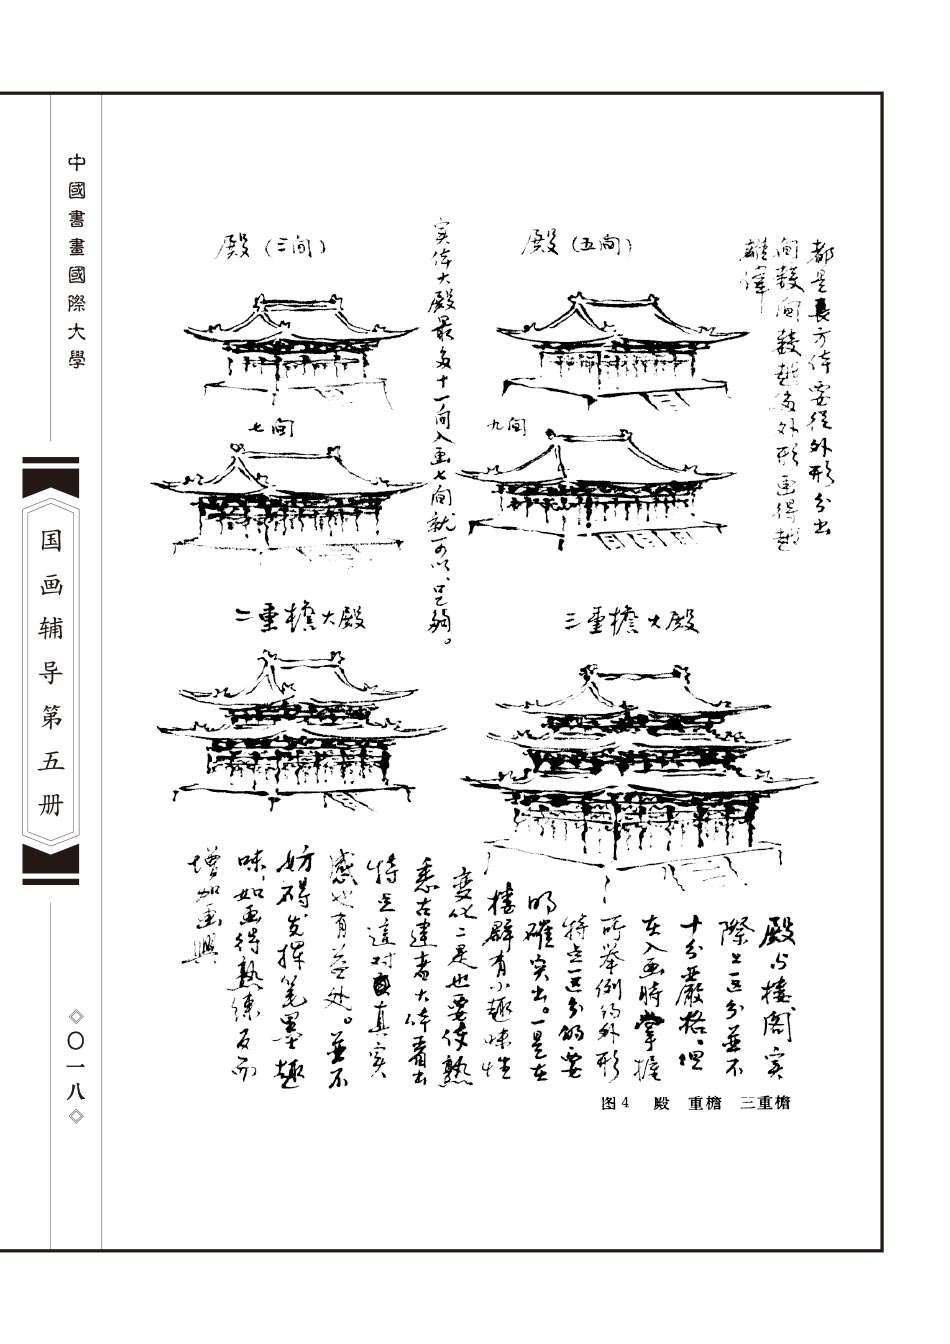 中國書畫國際大學
国画辅导第五册
〇一八
都是長方体要從外形分出
間數間數越多外形画得越
雄偉
殿(五间)
实体大殿最多十一间入画七间就可以、已夠。
殿(三间)
九间
七间
三重檐大殿
二重檐大殿
殿与楼阁实
際上区分並不
十分严格、但
在入画時掌握
所举例的外形
特点区分的要
明確突出。一是在
楼群有小趣味性
变化二是也要使熟
悉古建者大体看出
特点這对真实
感也有益处。並不
妨碍发揮笔墨趣
味、如画得熟练反而
增加画興
图4 殿 重檐 三重檐